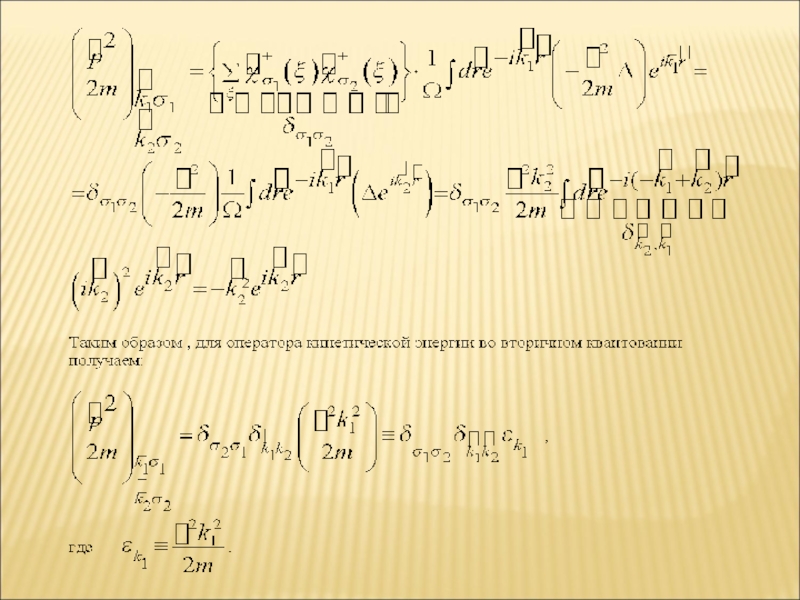 (□²/2m) k₁σ₁ k₂σ₂ = {∑ξ χ⁺σ₁(ξ)χ⁺σ₂(ξ)} · 1/Ω ∫dre^−ik₁r (−□²/2m Δ) e^ik₁r =
δσ₁σ₂
=δσ₁σ₂ (−□²/2m) 1/Ω ∫dre^−ik₁r (Δe^ik₂r) = δσ₁σ₂ □²k₂²/2m ∫dre^−i(−k₁+k₂)r
δk₂,k₁
(ik₂)² e^ik₂r = −k₂² e^ik₂r
Таким образом , для оператора кинетической энергии во вторичном квантовании
получаем:
(p²/2m) k₁σ₁ k₂σ₂ = δσ₂σ₁ δk₁k₂ (□²k₁²/2m) ≡ δσ₁σ₂ δk₁k₂ εk₁ ,
где εk₁ ≡ □²k₁²/2m .